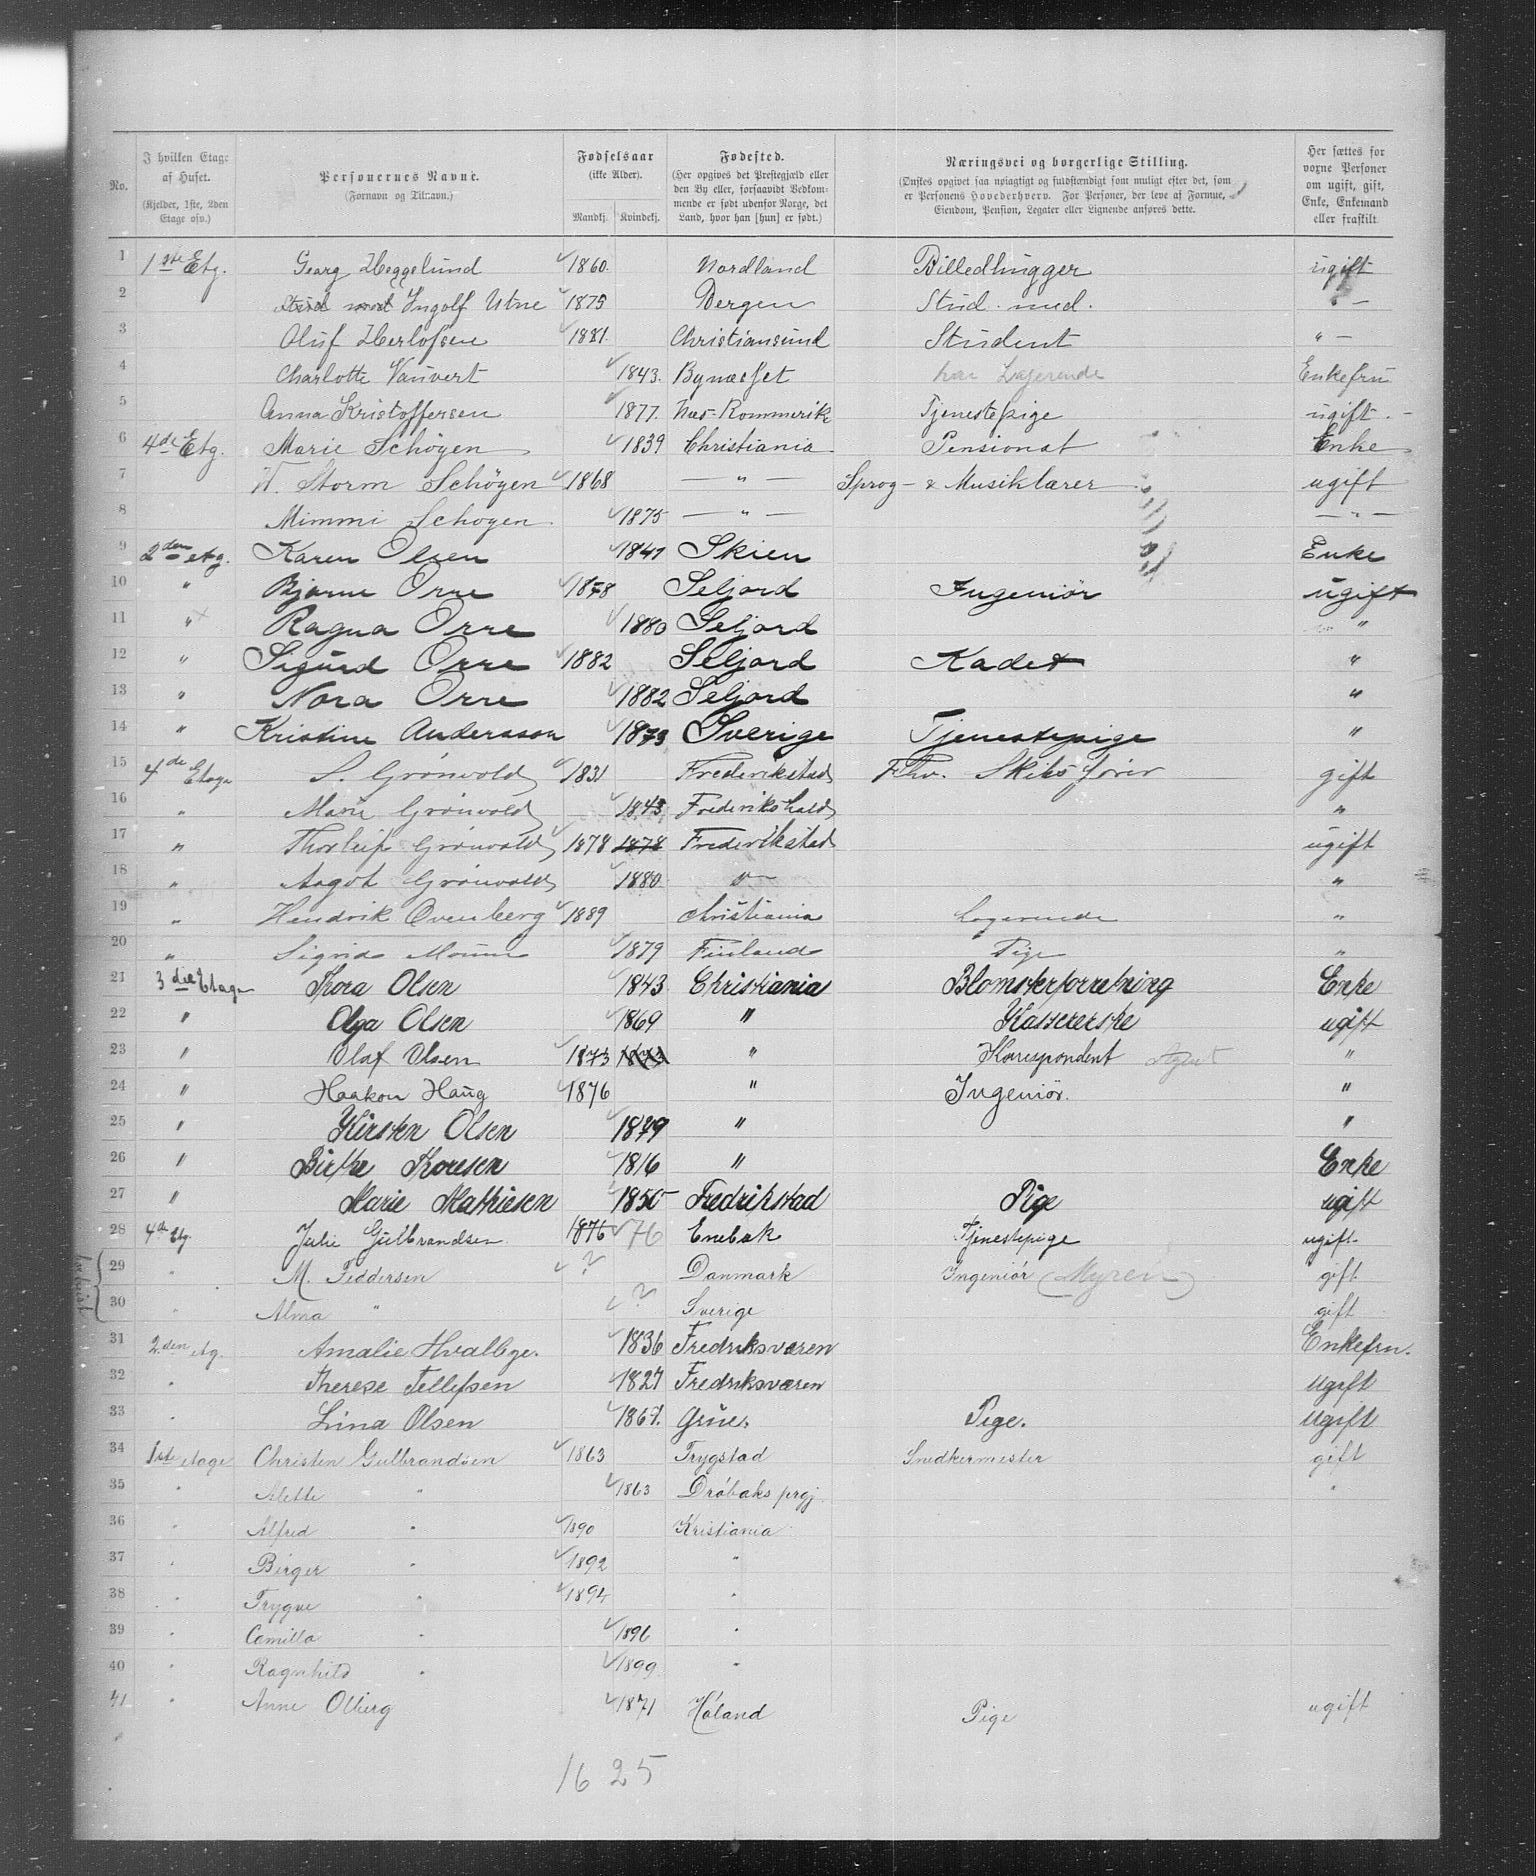 No. | I hvilken Etage af Huset. (Kjelder, 1ste, 2den Etage osv.) | Personernes Navne. (Fornavn og Tilnavn.) | Fødselsaar (ikke Alder). Mandkj. Kvindekj. | Fødested. (Her opgives det Prestegjæld eller den By eller, forsaavidt Vedkommende er født udenfor Norge, det Land, hvor han [hun] er født.) | Næringsvei og borgerlige Stilling. (Ønskes opgivet saa nøiagtigt og fuldstændigt som muligt efter det, som er Personens Hovederhverv. For Personer, der leve af Formue, Eiendom, Pension, Legater eller Lignende anføres dette. | Her sættes for voxne Personer om ugift, gift, Enke, Enkemand eller fraskilt.
1 1ste Etg. Georg Heggelund 1860. Nordland Billedhugger ugift
2 Stud med Ingolf Utne 1875 Bergen Stud. med. " —
3 Oluf Herlofsen 1881. Christiansund Student " —
4 Charlotte Vauvert 1843. Bynæsset har Logerende Enkefru
5 Anna Kristoffersen 1877. Næs-Rommerike Tjenestepige ugift. —
6 4de Etg. Marie Schøyen 1839 Christiania Pensionat Enke
7 W. Storm Schøyen 1868 — " — Sprog- & Musiklærer ugift
8 Mimmi Schøyen 1875 — " — — " —
9 2den etg. Karen Olsen 1847 Skien Enke
10 " Bjarne Orre 1878 Seljord Ingeniör ugift
11 " Ragna Orre 1880 Seljord "
12 " Sigurd Orre 1882 Seljord Kadet "
13 " Nora Orre 1882 Seljord "
14 " Kristine Andersson 1873 Sverige Tjenestepige "
15 4de Etage S. Grönvold 1831 Frederikstad Fhv. Skibsfører gift
16 " Marie Grönvold 1843 Frederikshald "
17 " Thorleif Grönvold 1878 1878 Frederikstad ugift
18 " Aagot Grönvold 1880 "— "
19 " Hendrik Ovenberg 1889 Christiania Logerende "
20 " Sigrid 1879 Finland Pige "
21 3die Etage Thora Olsen 1843 Christiania Blomsterforretning Enke
22 " Olga Olsen 1869 " Kassererske ugift
23 " Olaf Olsen 1873 1873 " Korrespondent Agent "
24 " Haakon Haug 1876 " Ingeniör. "
25 " Kirsten Olsen 1879 " "
26 " Birthe Thoresen 1816 " Enke
27 " Marie Mathiesen 1850 Fredrikstad Pige ugift
28 4de Etg. Julie Gulbrandsen 1876 76 Enebak Tjenestepige ugift.
29 " M. Feddersen ? Danmark Ingeniör (Myren) gift
30 " Alma " ? Sverige gift
31 2den etg. Amalie Hvalbye. 1836 Fredriksværen Enkefru.
32 " Therese Tellefsen 1827 Fredriksværen ugift
33 " Lina Olsen 1867. Grue. Pige. Ugift
34 1ste etage Christen Gulbrandsen 1863 Trygstad Snedkermester gift
35 " Alette " 1863 Dröbaks prgj. "
36 " Alfred " 1890 Kristiania
37 " Birger " 1892 "
38 " Trygve 1894 "
39 " Camilla " 1896 "
40 " Ragnhild " 1899 "
41 " Anne Olberg 1871 Høland Pige ugift
16 25